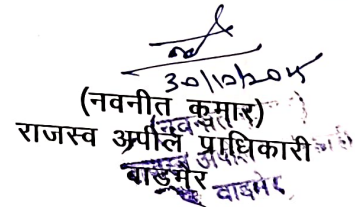 30/10/2025
(नवनीत कुमार)
राजस्व अपील प्राधिकारी
बाड़मेर
बाडमेर